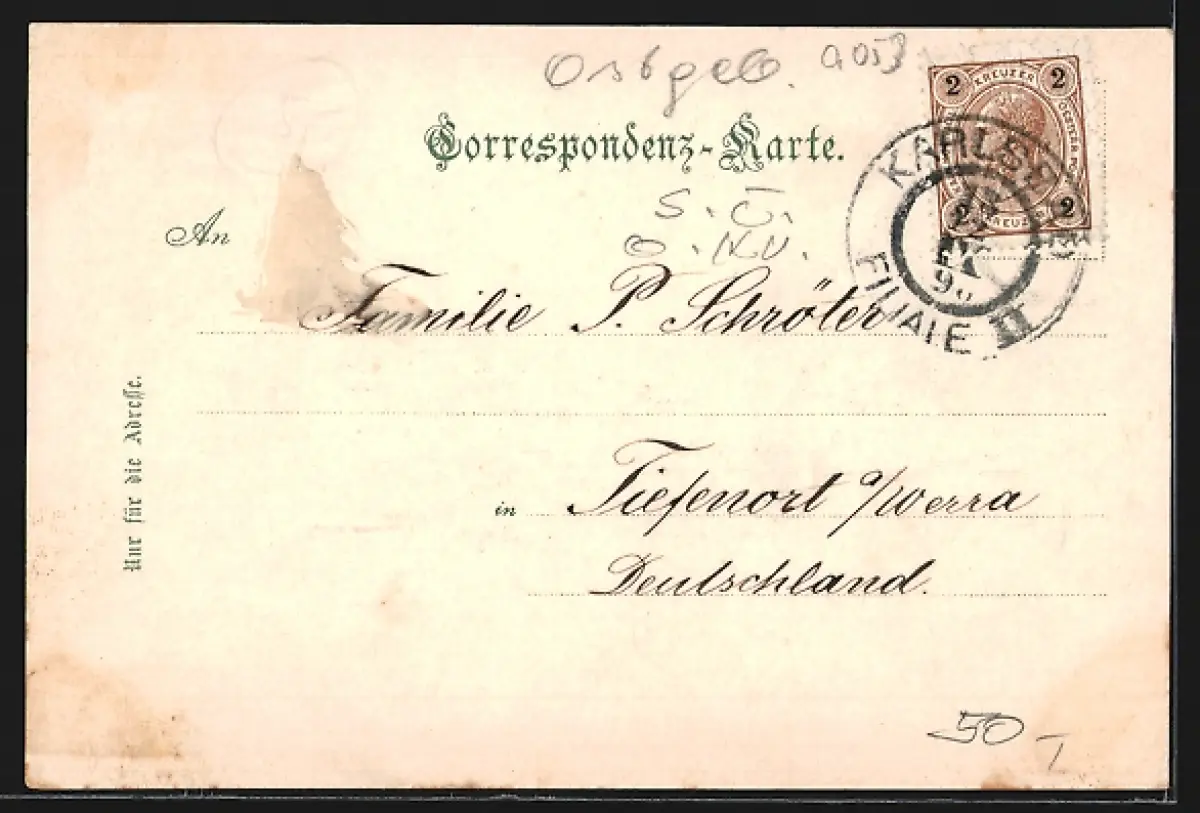 Ostgeb. a053
Correspondenz-Karte.
2 KREUZER 2
2 KREUZER 2
KARLSB
FILIALE II
S. Ü.
An
Familie P. Schröter
Nur für die Adresse.
in Tiefenort a/Werra
Deutschland.
50